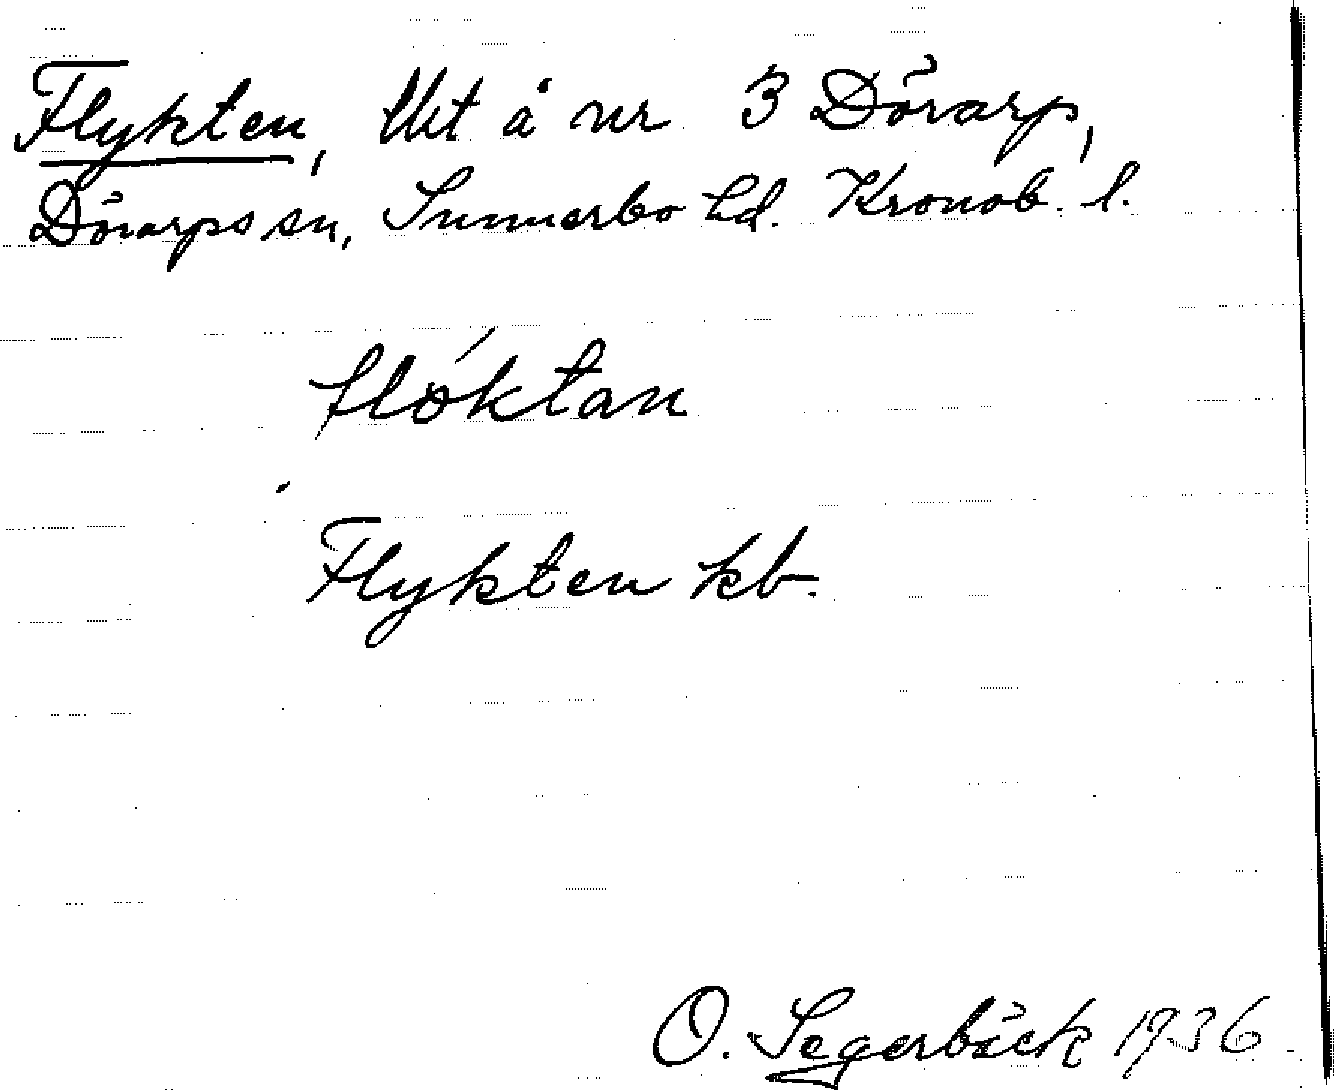 Flykten, Utt å nr 3 Dörarp,
Dörarps sn, Sunnerbo hd. Kronob. l.
fløktan
Flykten kb.
O. Segerbäck 1936